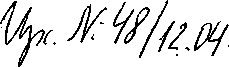 Исх. №: 48/12.04.